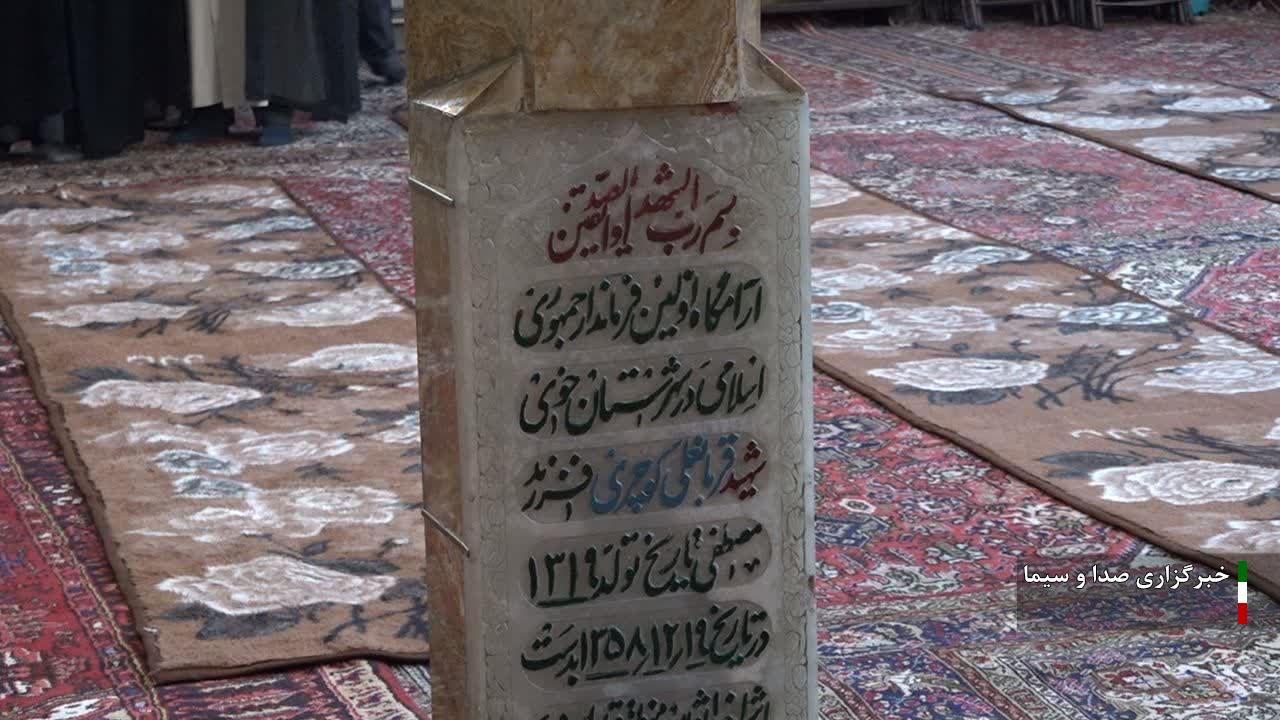 بسم رب الشهدا والصدیقین
آرامگاه اولین فرماندار جمهوری
اسلامی در شهرستان خوی
شهید قربانعلی کوچری فرزند
مصطفی تاریخ تولد ۱۳۱۹
در تاریخ ۱۳۵۸٫۱۲٫۱۹ بدست
خبرگزاری صدا و سیما